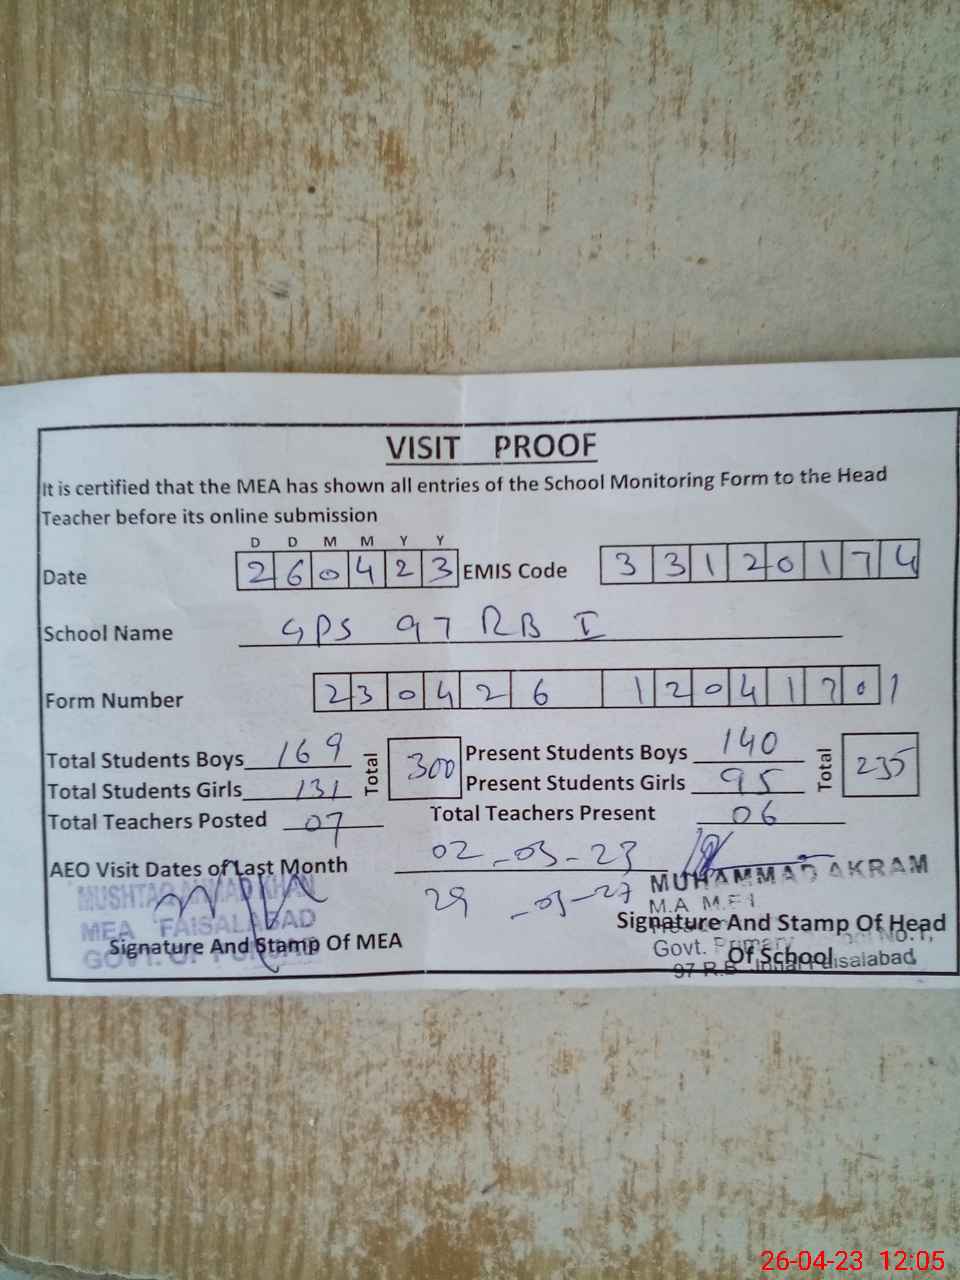 VISIT PROOF
It is certified that the MEA has shown all entries of the School Monitoring Form to the Head
Teacher before its online submission
D D M M Y Y
Date 2 6 0 4 2 3 EMIS Code 3 3 1 2 0 1 7 4
School Name GPS 97 RB I
Form Number 2 3 0 4 2 6 1 2 0 4 1 7 0 1
Total Students Boys 169 Total 300 Present Students Boys 140 Total 235
Total Students Girls 131 Present Students Girls 95
Total Teachers Posted 07 Total Teachers Present 06
AEO Visit Dates of Last Month 02-03-23
29-03-23
MUSHTAQ AHMAD KHAN
MEA FAISALABAD
GOVT. OF PUNJAB
Signature And Stamp Of MEA
MUHAMMAD AKRAM
M.A M.Ed
Signature And Stamp Of Head
Of School
Govt. Primary No.1,
97 R.B Faisalabad
26-04-23 12:05